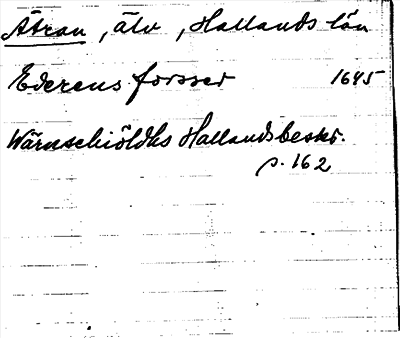 Ätran, älv, Hallands län
Ederens forsser 1645
Wärnschiöldhs Hallandsbeskr.
s. 162